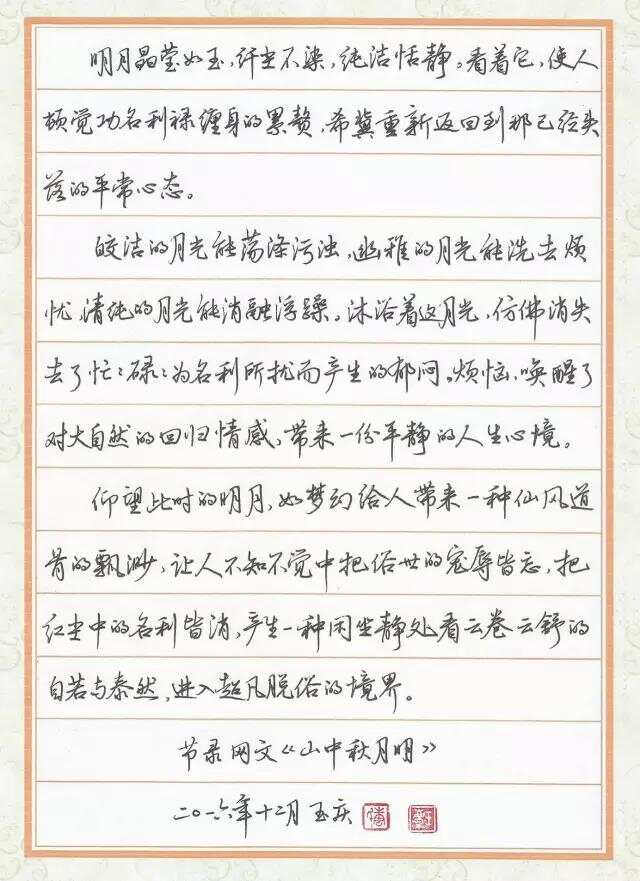 明月晶莹如玉,纤尘不染,纯洁恬静。看着它,使人
顿觉功名利禄缠身的累赘,希冀重新返回到那已经失
落的平常心态。
皎洁的月光能荡涤污浊,幽雅的月光能洗去烦
忧,清纯的月光能消融浮躁。沐浴着这月光,仿佛消失
去了忙忙碌碌为名利所扰而产生的郁闷、烦恼,唤醒了
对大自然的回归情感,带来一份平静的人生心境。
仰望此时的明月,如梦幻给人带来一种仙风道
骨的飘渺,让人不知不觉中把俗世的宠辱皆忘,把
红尘中的名利皆消,产生一种闲坐静处看云卷云舒的
自若与泰然,进入超凡脱俗的境界。
节录网文《山中秋月明》
二〇一六年十二月 玉庆